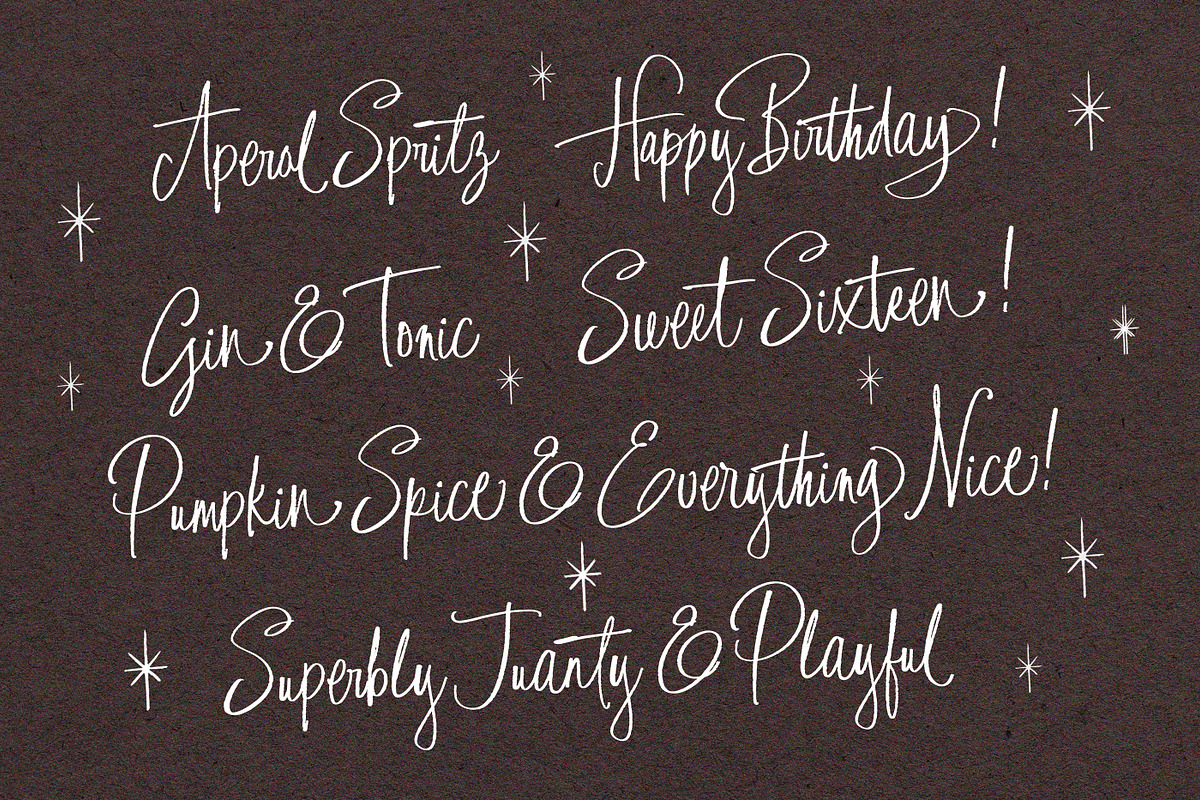 Aperol Spritz Happy Birthday!
Gin & Tonic Sweet Sixteen!
Pumpkin Spice & Everything Nice!
Superbly Juanty & Playful